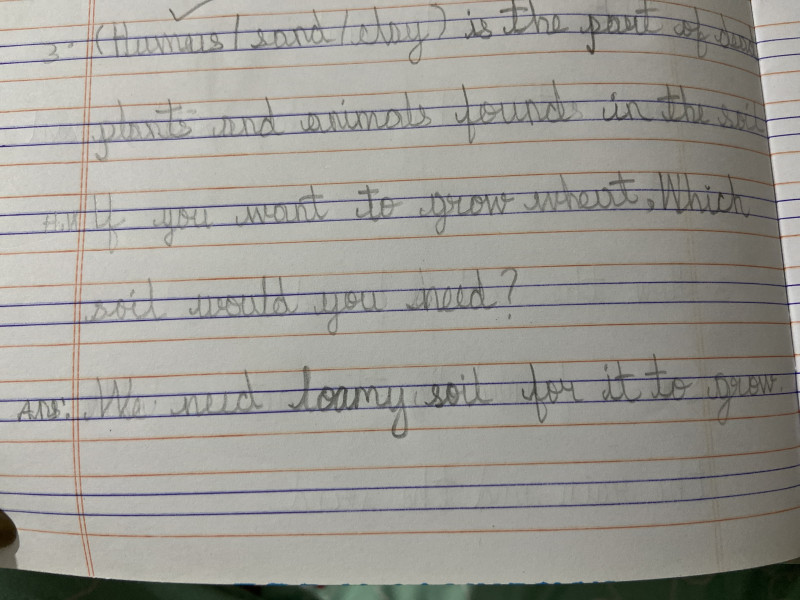 3. (Humus/sand/clay) is the part of dead
plants and animals found in the soil
H.W If you want to grow wheat, Which
soil would you need?
Ans: We need loamy soil for it to grow.